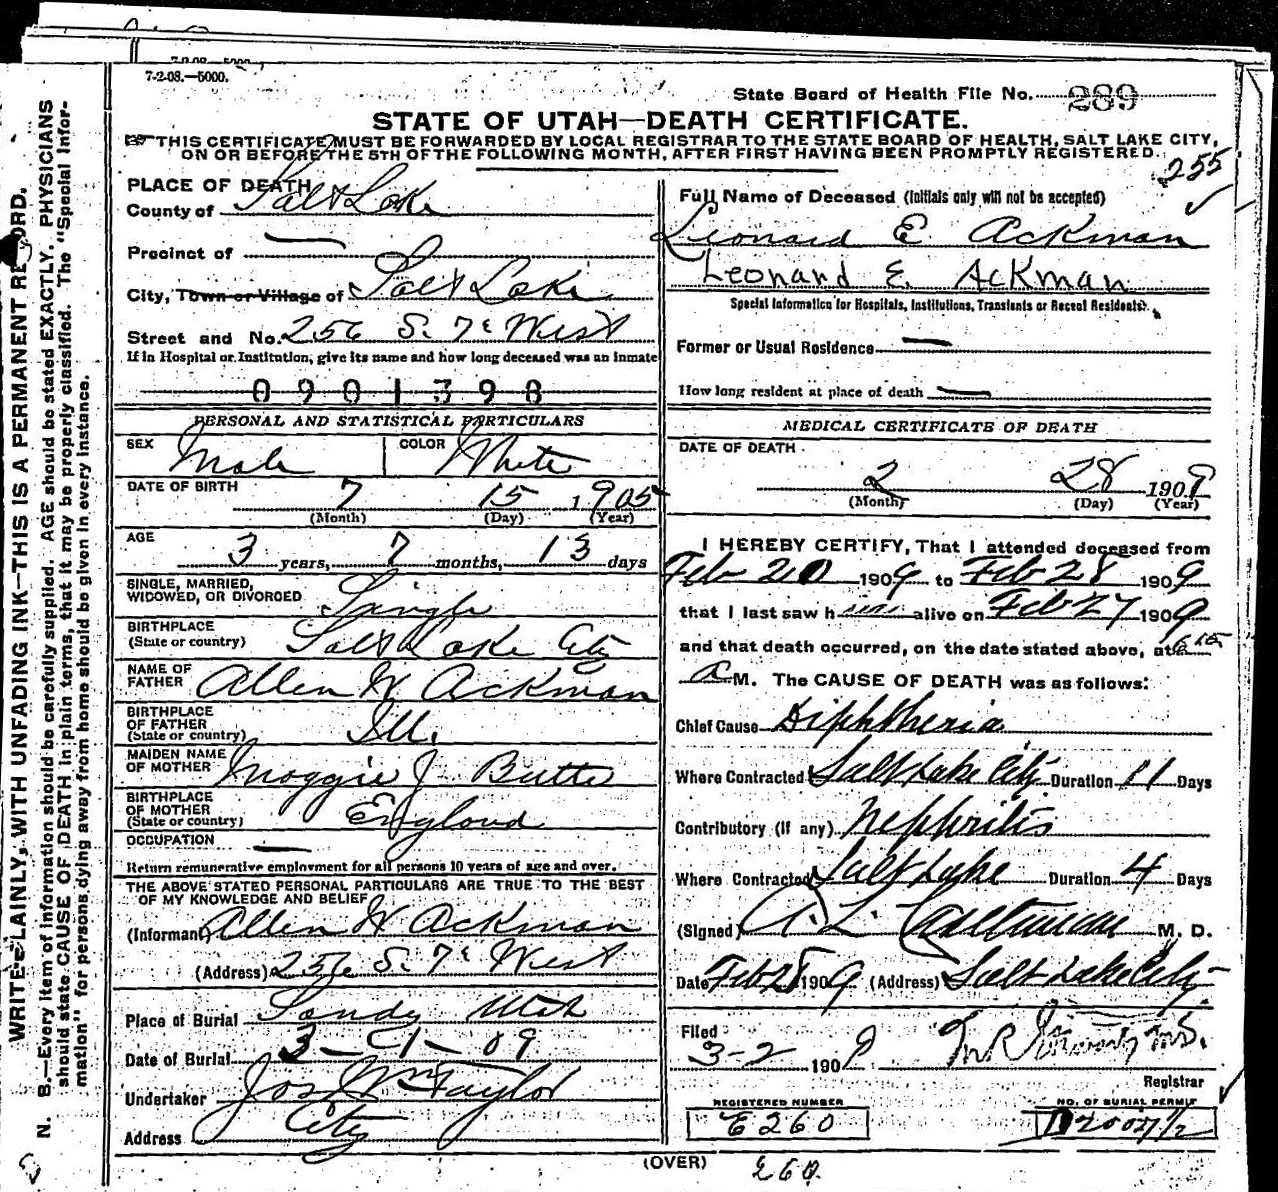 7-2-08.—5000.
State Board of Health File No. 289
STATE OF UTAH—DEATH CERTIFICATE.
THIS CERTIFICATE MUST BE FORWARDED BY LOCAL REGISTRAR TO THE STATE BOARD OF HEALTH, SALT LAKE CITY,
ON OR BEFORE THE 5TH OF THE FOLLOWING MONTH, AFTER FIRST HAVING BEEN PROMPTLY REGISTERED.
255
WRITE PLAINLY, WITH UNFADING INK—THIS IS A PERMANENT RECORD.
N. B.—Every item of information should be carefully supplied. AGE should be stated EXACTLY. PHYSICIANS
should state CAUSE OF DEATH in plain terms, that it may be properly classified. The "Special Infor-
mation" for persons dying away from home should be given in every instance.
PLACE OF DEATH
County of Salt Lake
Precinct of —
City, Town or Village of Salt Lake
Street and No. 256 S. 7th West
If in Hospital or Institution, give its name and how long deceased was an inmate
0901398
PERSONAL AND STATISTICAL PARTICULARS
SEX Male COLOR White
DATE OF BIRTH 7 15 1905
(Month) (Day) (Year)
AGE 3 years, 7 months, 13 days
SINGLE, MARRIED,
WIDOWED, OR DIVORCED Single
BIRTHPLACE
(State or country) Salt Lake City
NAME OF
FATHER Allen W Ackman
BIRTHPLACE
OF FATHER
(State or country) Ill.
MAIDEN NAME
OF MOTHER Maggie J Butte
BIRTHPLACE
OF MOTHER
(State or country) England
OCCUPATION —
Return remunerative employment for all persons 10 years of age and over.
THE ABOVE STATED PERSONAL PARTICULARS ARE TRUE TO THE BEST
OF MY KNOWLEDGE AND BELIEF
(Informant) Allen W Ackman
(Address) 256 S. 7th West
Place of Burial Sandy Utah
Date of Burial 3-1-09
Undertaker Jos Wm Taylor
Address City
Full Name of Deceased (Initials only will not be accepted)
Leonard E Ackman
Leonard E. Ackman
Special Information for Hospitals, Institutions, Transients or Recent Residents.
Former or Usual Residence —
How long resident at place of death —
MEDICAL CERTIFICATE OF DEATH
DATE OF DEATH
2 28 1909
(Month) (Day) (Year)
I HEREBY CERTIFY, That I attended deceased from
Feb 20 1909 to Feb 28 1909
that I last saw him alive on Feb 27 1909
and that death occurred, on the date stated above, at 6 15
A M. The CAUSE OF DEATH was as follows:
Chief Cause Diphtheria
Where Contracted Salt Lake City Duration 11 Days
Contributory (if any) Nephritis
Where Contracted Salt Lake Duration 4 Days
(Signed) A. L. M. D.
Date Feb 28 1909 (Address) Salt Lake City
Filed
3-2 1909 M.D.
Registrar
REGISTERED NUMBER
E260
NO. OF BURIAL PERMIT
D2007 1/2
(OVER)
E60.